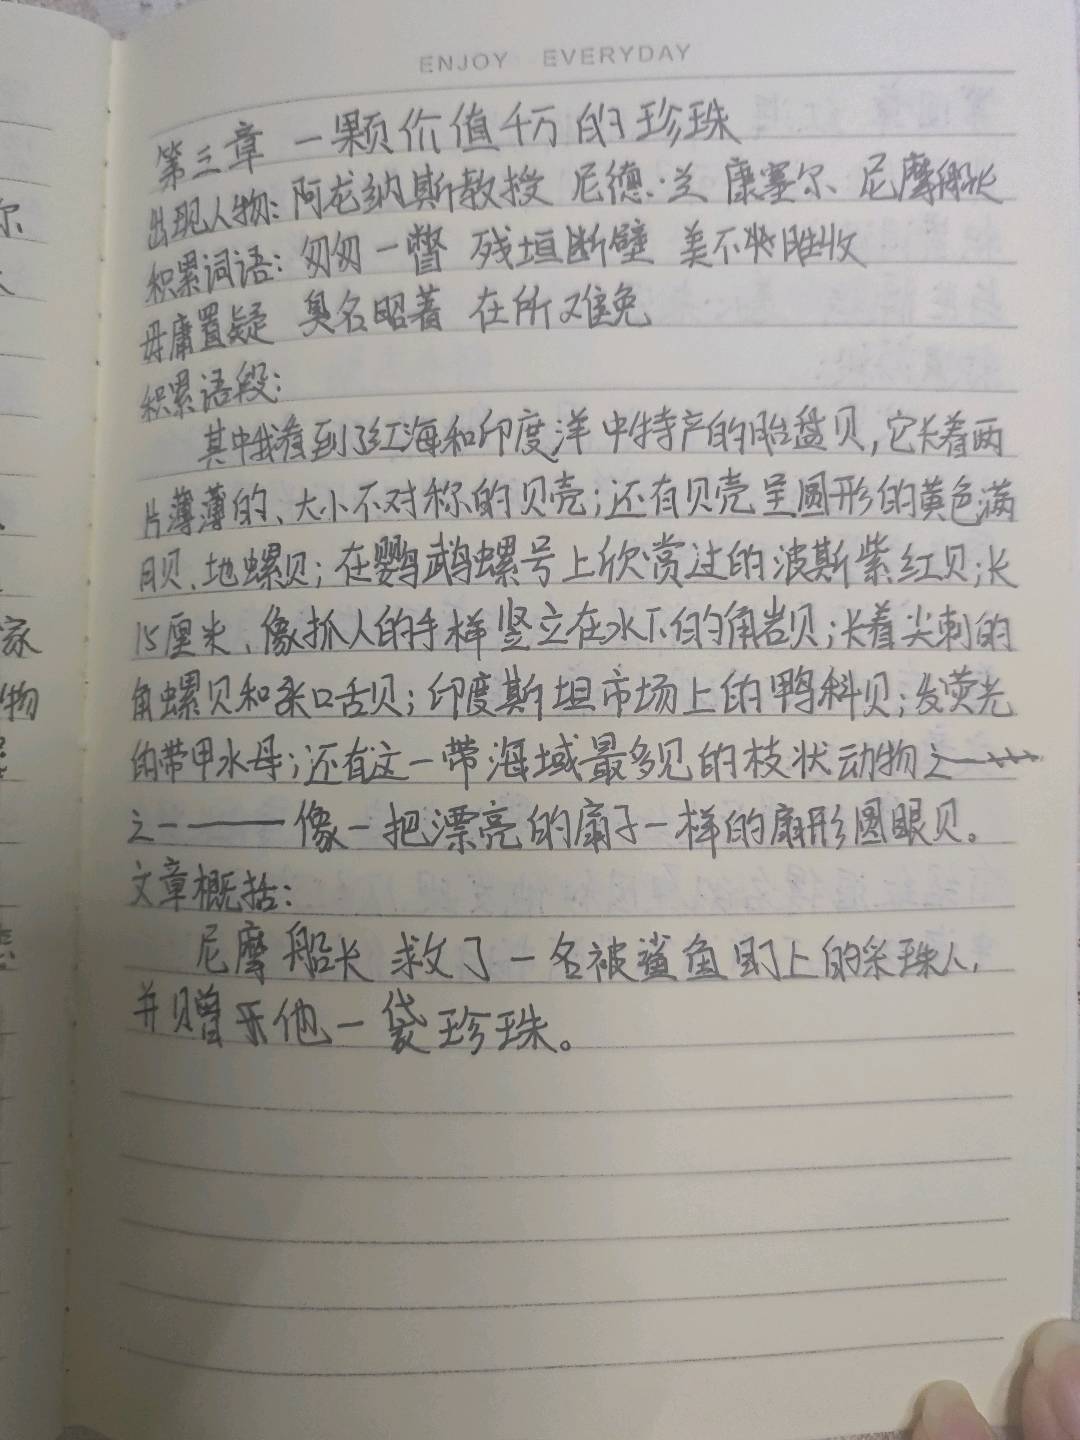 ENJOY EVERYDAY
第三章 一颗价值千万的珍珠
出现人物：阿龙纳斯教授 尼德·兰 康塞尔、尼摩船长
积累词语：匆匆一瞥 残垣断壁 美不胜收
毋庸置疑 臭名昭著 在所难免
积累语段：
其中我看到了红海和印度洋中特产的胎盘贝，它长着两
片薄薄的、大小不对称的贝壳；还有贝壳呈圆形的黄色满
月贝、地螺贝；在鹦鹉螺号上欣赏过的波斯紫红贝；长
15厘米、像抓人的手样竖立在水下的角岩贝；长着尖刺的
角螺贝和采口舌贝；印度斯坦市场上的鸭科贝；发荧光
的带甲水母；还有这一带海域最多见的枝状动物之一
之一——像一把漂亮的扇子一样的扇形圆眼贝。
文章概括：
尼摩船长救了一名被鲨鱼盯上的采珠人，
并赠予他一袋珍珠。
尔
家
物